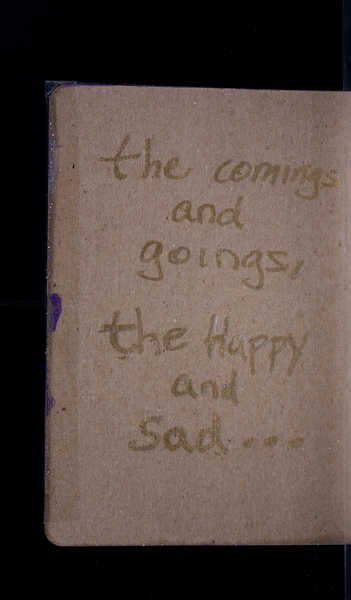 the comings
and
goings,
the Happy
and
sad...